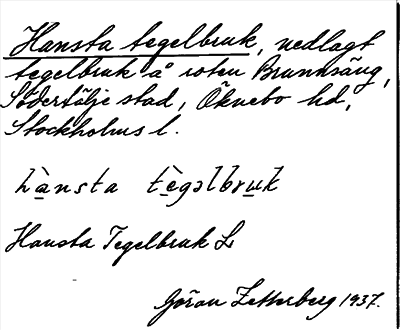 Hansta tegelbruk, nedlagt
tegelbruk å roten Brunnsäng,
Södertälje stad, Öknebo hd,
Stockholms l.
hạ̀nsta tẹ̀gəlbrụk
Hansta Tegelbruk L
Göran Zetterberg 1937.